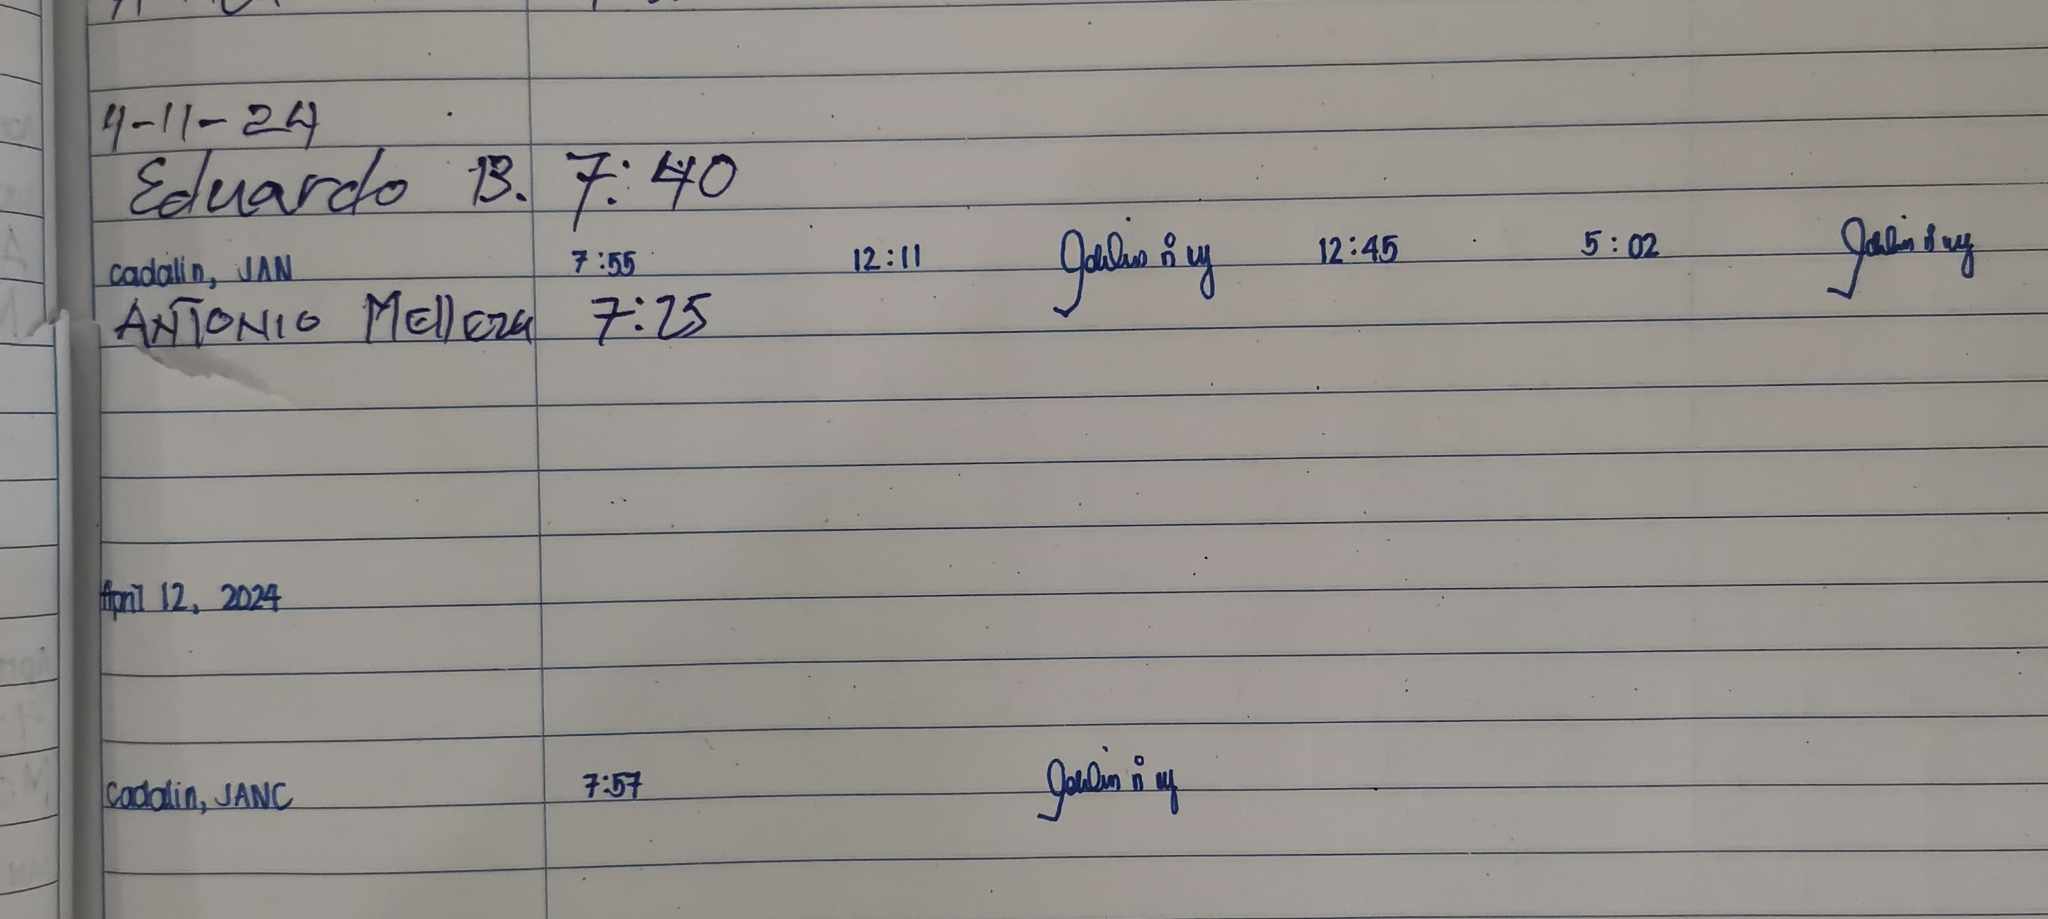 4-11-24
Eduardo B. 7:40
cadalin, JAN 7:55 12:11 12:45 5:02
ANTONIO Melleza 7:25
April 12, 2024
cadalin, JANC 7:57